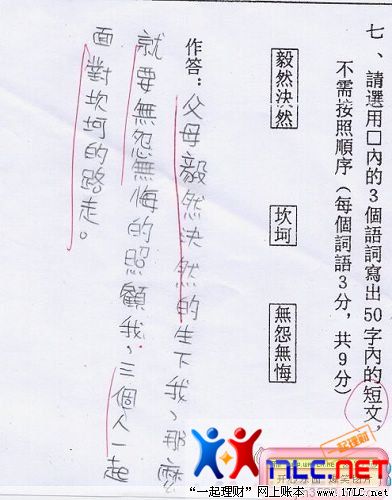 七、請選用□內的3個語詞寫出50字內的短文，
不需按照順序（每個詞語3分，共9分）
毅然決然
坎坷
無怨無悔
作答：父母毅然決然的生下我、那麼
就要無怨無悔的照顧我，三個人一起
面對坎坷的路走。
一起理财
nLC.net
“一起理财”网上账本 www.17LC.net